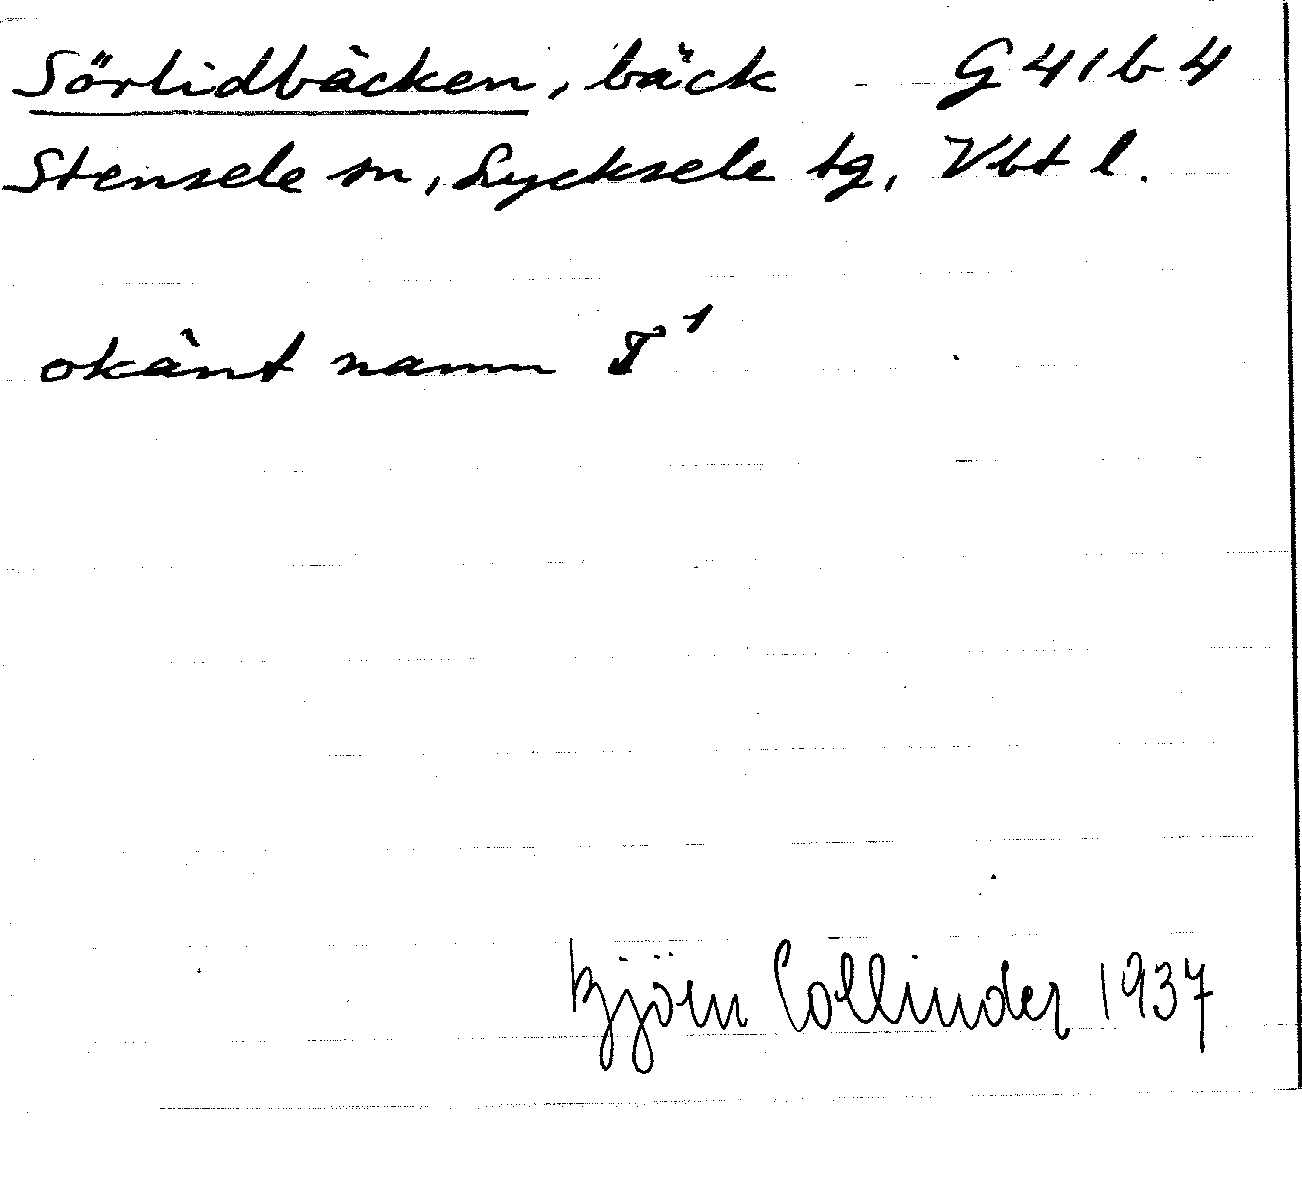 Sörlidbäcken, bäck G 41 b 4
Stensele sn, Lycksele tg, Vbt l.
okänt namn T¹
Björn Collinder 1937